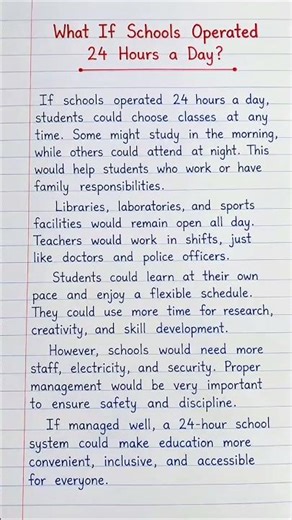 What If Schools Operated
24 Hours a Day?
If schools operated 24 hours a day,
students could choose classes at any
time. Some might study in the morning,
while others could attend at night. This
would help students who work or have
family responsibilities.
Libraries, laboratories, and sports
facilities would remain open all day.
Teachers would work in shifts, just
like doctors and police officers.
Students could learn at their own
pace and enjoy a flexible schedule.
They could use more time for research,
creativity, and skill development.
However, schools would need more
staff, electricity, and security. Proper
management would be very important
to ensure safety and discipline.
If managed well, a 24-hour school
system could make education more
convenient, inclusive, and accessible
for everyone.